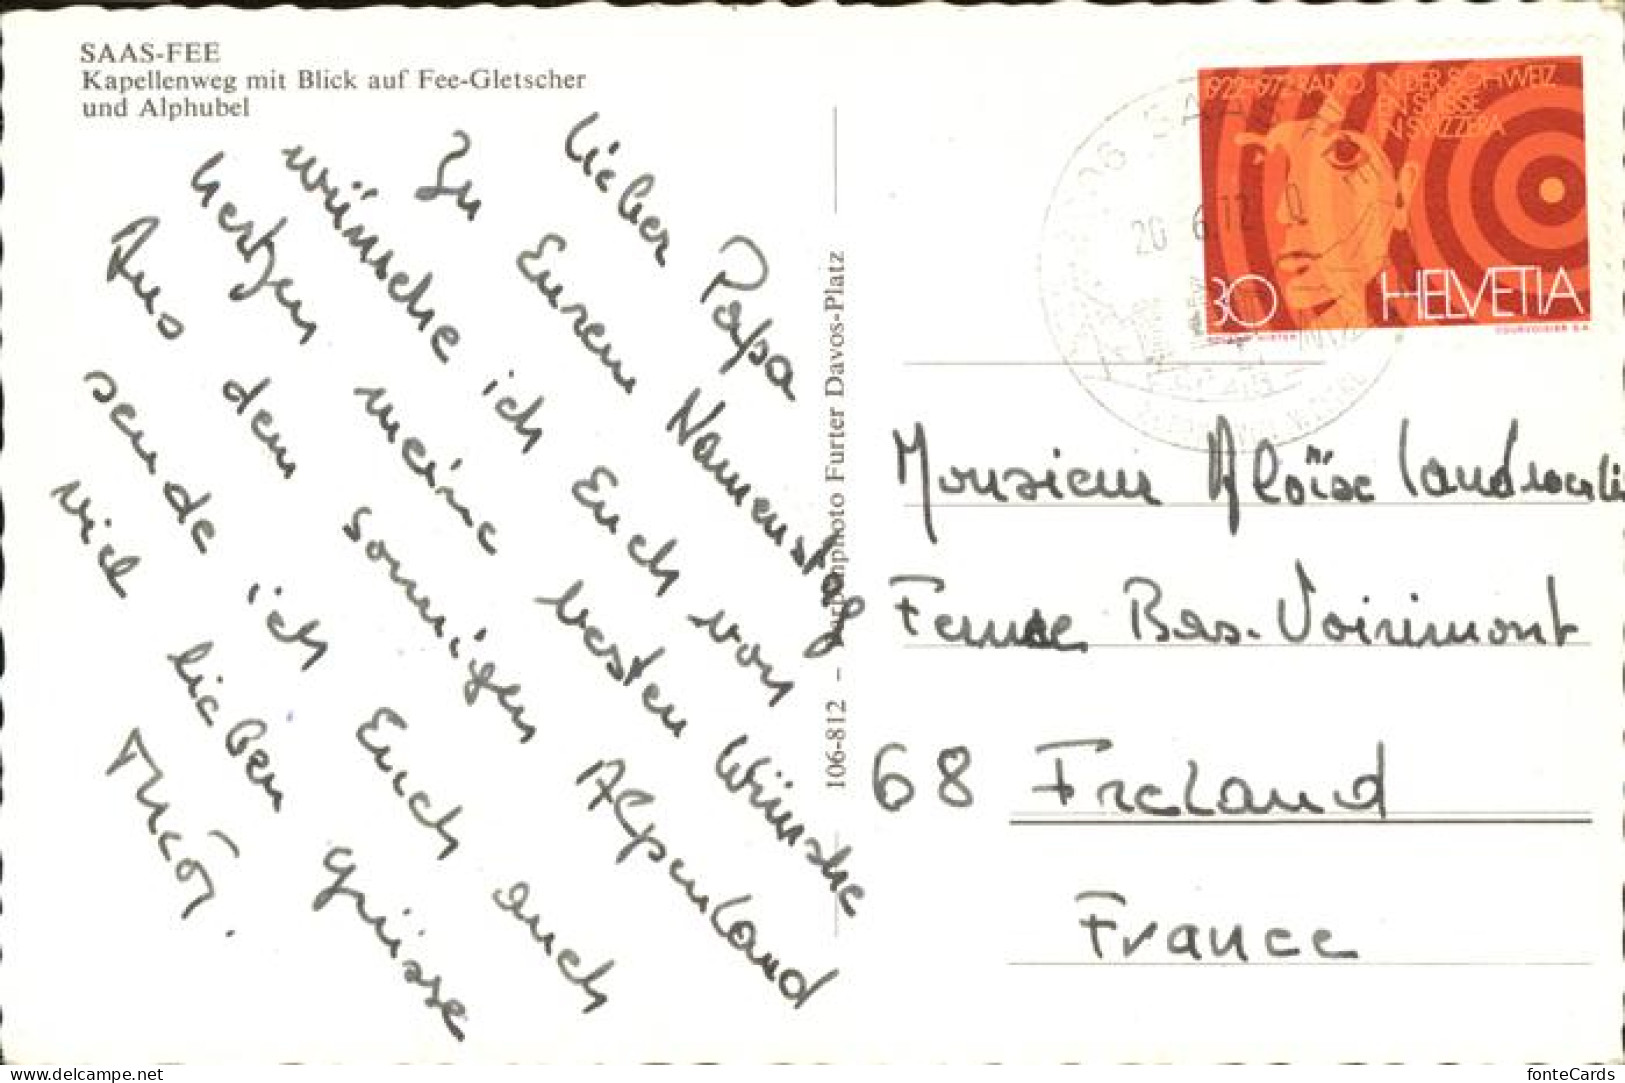 SAAS-FEE
Kapellenweg mit Blick auf Fee-Gletscher
und Alphubel
lieber Papa
Zu Eurem Namenstag
wünsche ich Euch von
herzen meine besten Wünsche
Aus dem sonnigen Alpenland
sende ich Euch auch
viel lieben grüsse
106-812 – Farbenphoto Furter Davos-Platz
1922-1972 RADIO IN DER SCHWEIZ
EN SUISSE
IN SVIZZERA
30 HELVETIA
COURVOISIER S.A.
SAAS
20 6.72
Monsieur Aloïse
Ferme Bas-Voirimont
68 Freland
France
www.delcampe.net
fonteCards